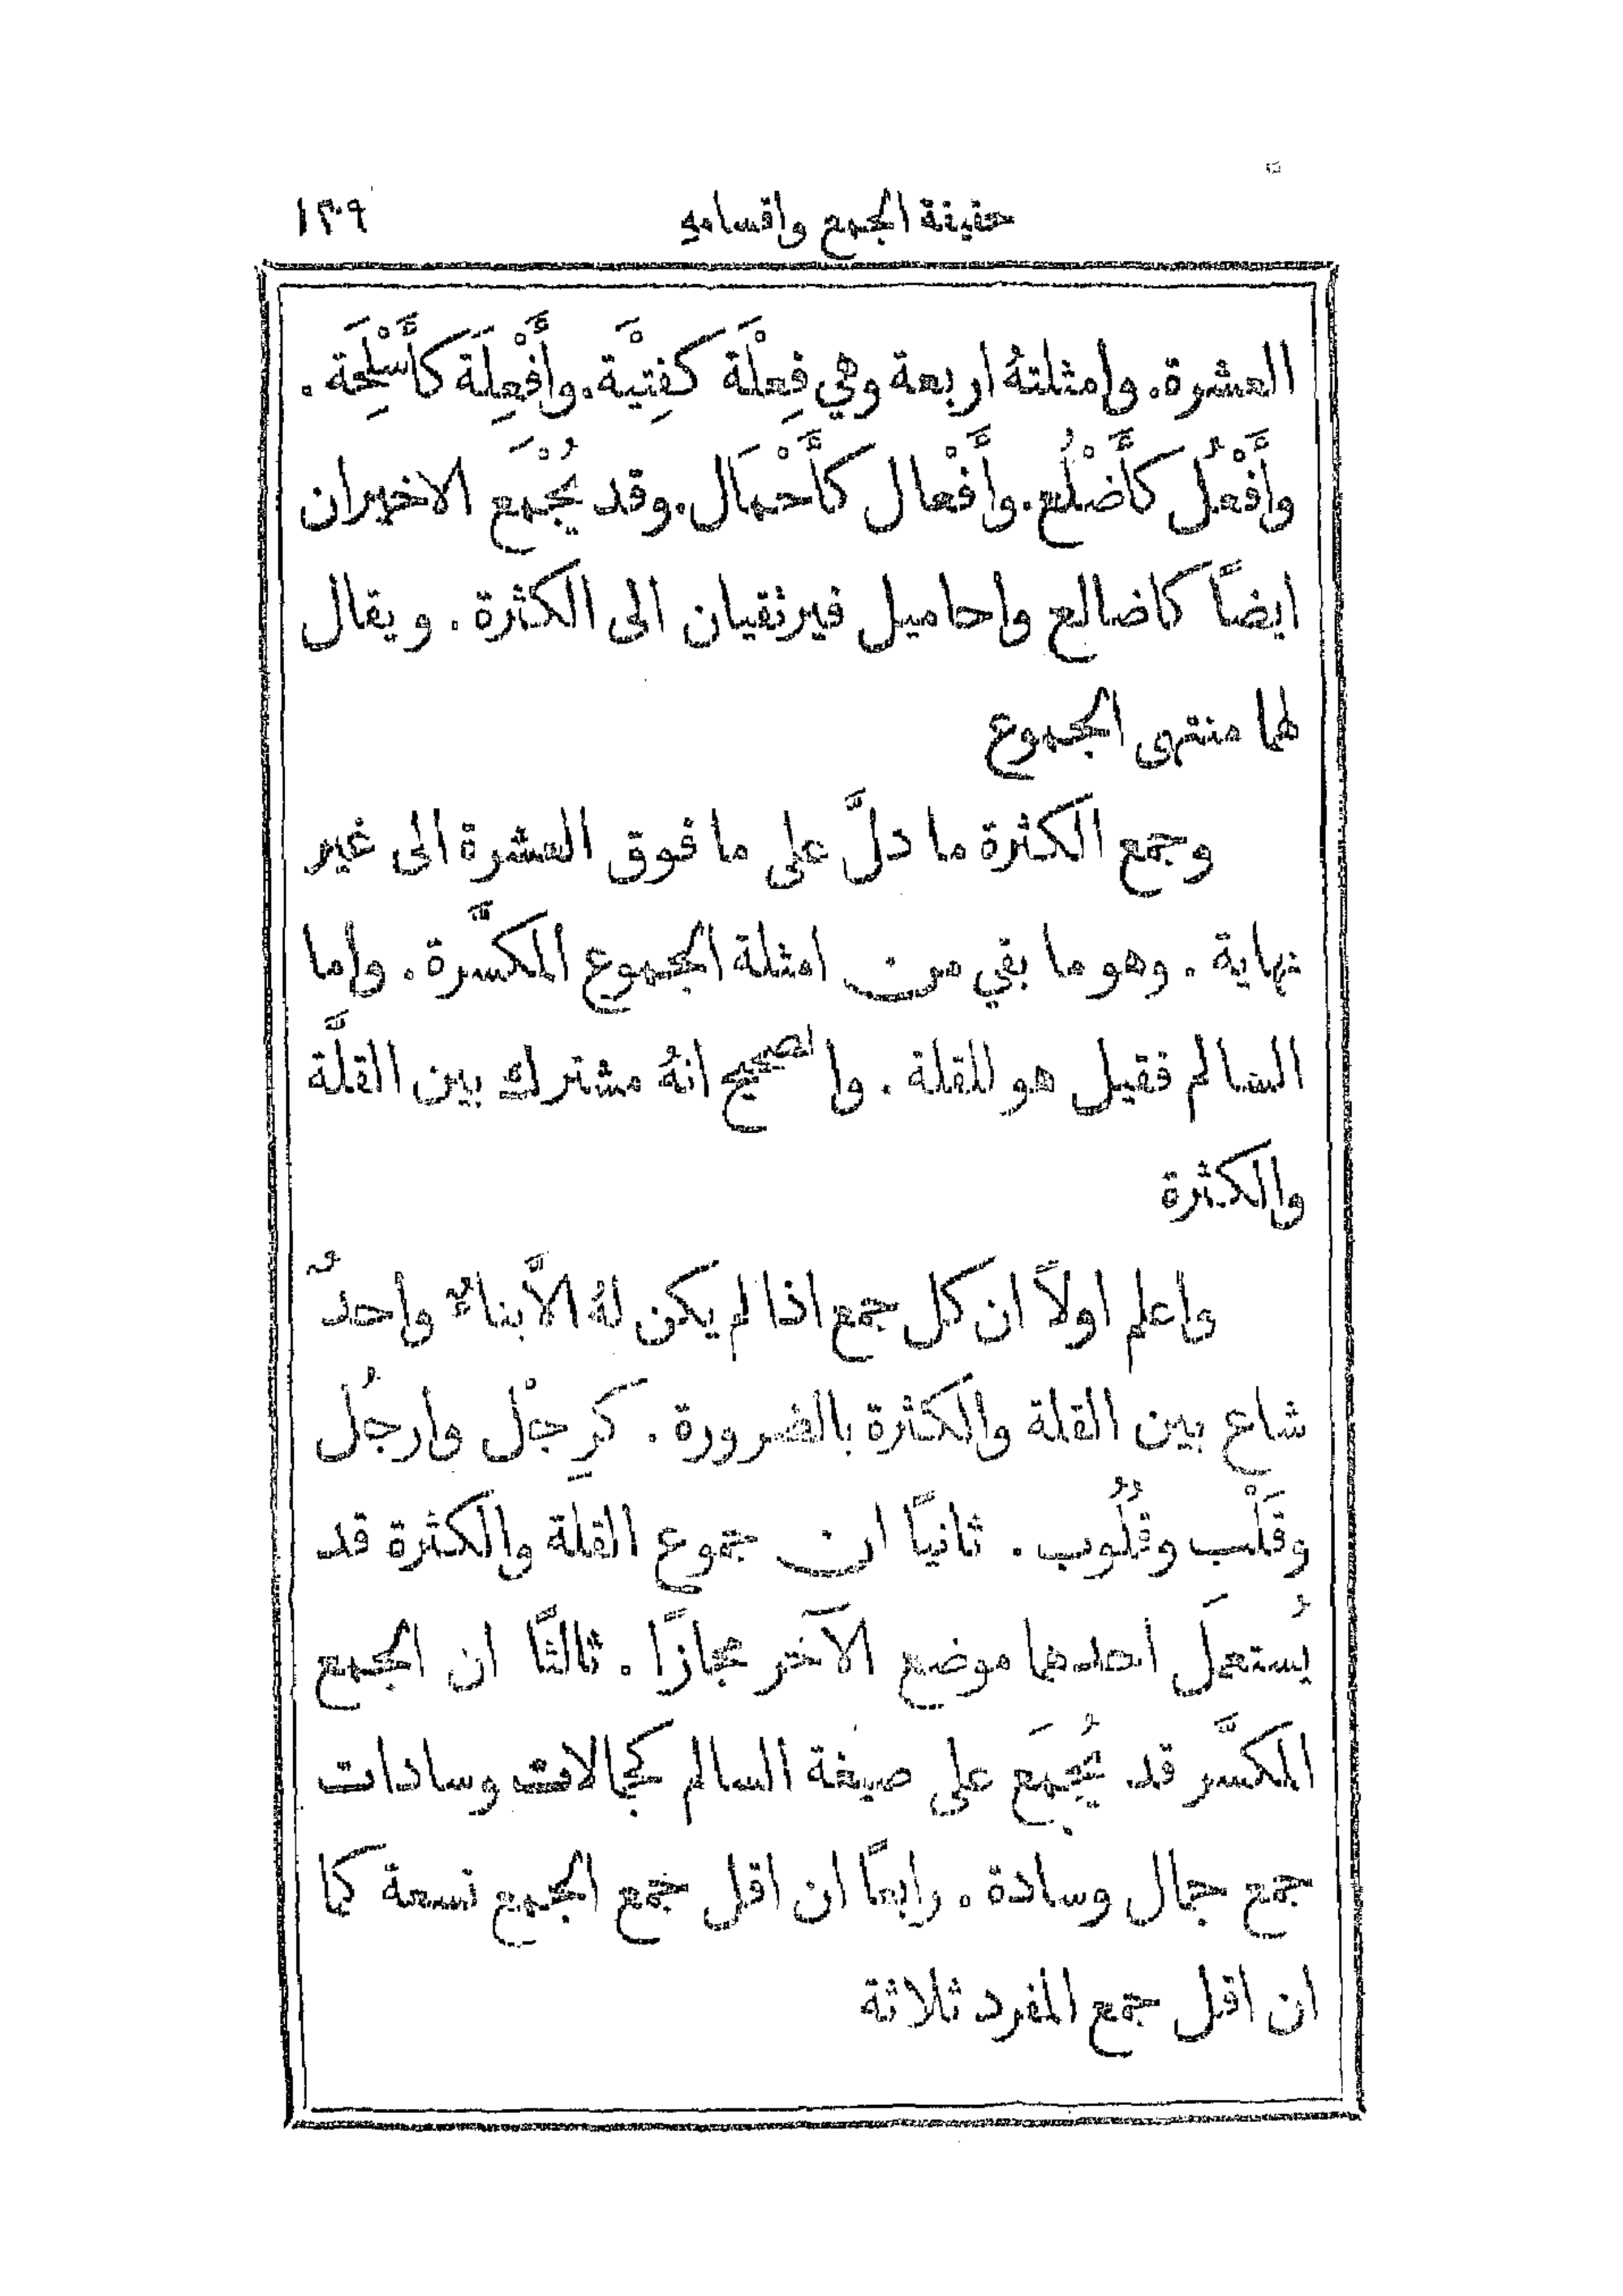 حقيقة الجمع واقسامهِ ١٣٩
العشرة. وامثلتهُ اربعة وهي فِعْلَة كفِتْيَة. وأَفْعِلَة كأَسْلِحَة.
وأَفْعُل كأَضْلُع. وأَفْعال كأَحْمَال. وقد يُجْمَع الاخيران
ايضاً كاضالع واحاميل فيرتقيان الى الكثرة. ويقال
لهما منتهى الجموع
وجمع الكثرة ما دلَّ على ما فوق العشرة الى غير
نهاية. وهو ما بقي من امثلة الجموع المكسَّرة. واما
السالم فقيل هو للقلة. والصحيح انهُ مشترك بين القلَّة
والكثرة
واعلم اولاً ان كل جمع اذا لم يكن لهُ الاَّ بناءٌ واحدٌ
شاع بين القلة والكثرة بالضرورة. كرِجْل وارجُل
وقَلْب وقُلُوب. ثانياً ان جموع القلة والكثرة قد
يُستعمَل احدهما موضع الآخر مجازًا. ثالثًا ان الجمع
المكسَّر قد يُجمَع على صيغة السالم كجمالات وسادات
جمع جمال وسادة. رابعاً ان اقل جمع الجمع تسعة كما
ان اقل جمع المفرد ثلاثة